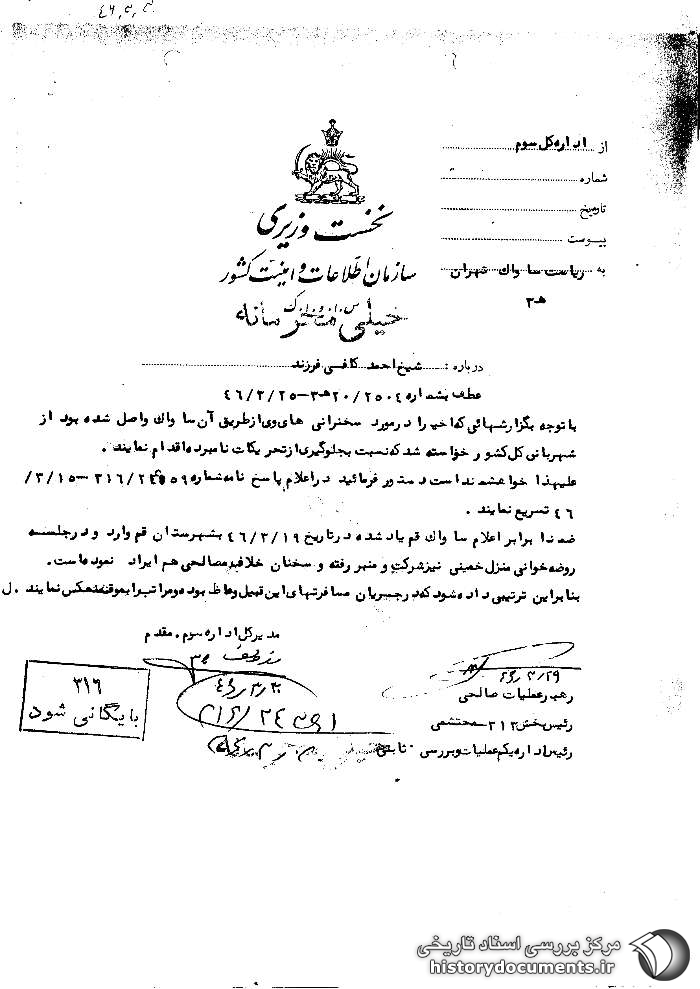 ۴۶٫۳٫
از اداره کل سوم
شماره
تاریخ
پیوست
به ریاست ساواک تهران
۳ﻫ
نخست وزیری
سازمان اطلاعات و امنیت کشور
خیلی محرمانه
درباره : شیخ احمد کافی فرزند
عطف بشماره ۲۰/۲۵۰٤ﻫ۳-۴۶/۲/۲۵
با توجه بگزارشهائی که اخیرا در مورد سخنرانی های وی از طریق آن ساواک واصل شده بود از
شهربانی کل کشور خواسته شد که نسبت بجلوگیری از تحریکات نامبرده اقدام نمایند .
علیهذا خواهشمند است دستور فرمائید در اعلام پاسخ نامه شماره ۳۱۶/۲۴۵۵۹-۳/۱۵/
۴۶ تسریع نمایند .
ضمنا برابر اعلام ساواک قم یاد شده در تاریخ ۴۶/۳/۱۹ بشهرستان قم وارد و در جلسه
روضه خوانی منزل خمینی نیز شرکت و منبر رفته و سخنان خلاف مصالحی هم ایراد نموده است.
بنابراین ترتیبی داده شود که در جریان مسافرتهای این قبیل وعاظ بوده و مراتب را بموقع منعکس نمایند . ل
مدیر کل اداره سوم . مقدم
۴۶٫۳٫۲۹
رهبر عملیات صالحی
رئیس بخش ۳۱۲ محتشمی
رئیس اداره یکم عملیات و بررسی . ثابتی
۴۶٫۳٫۳۰
۳۱۶
بایگانی شود
مرکز بررسی اسناد تاریخی
historydocuments.ir